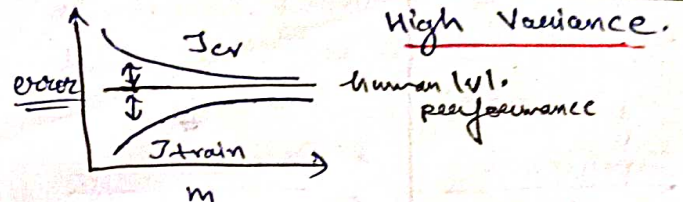 High Variance.
Jcv
error
human lvl.
performance
Jtrain
m